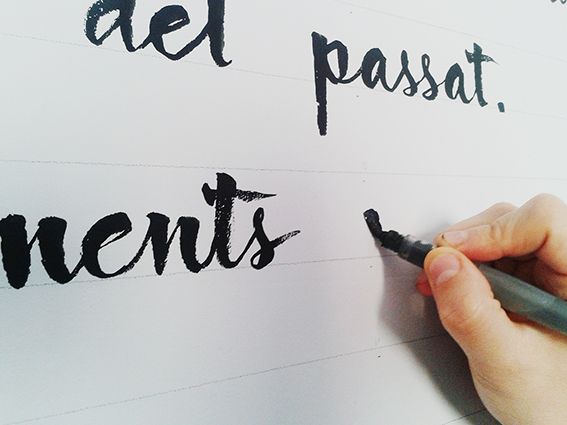 del passat.
nents